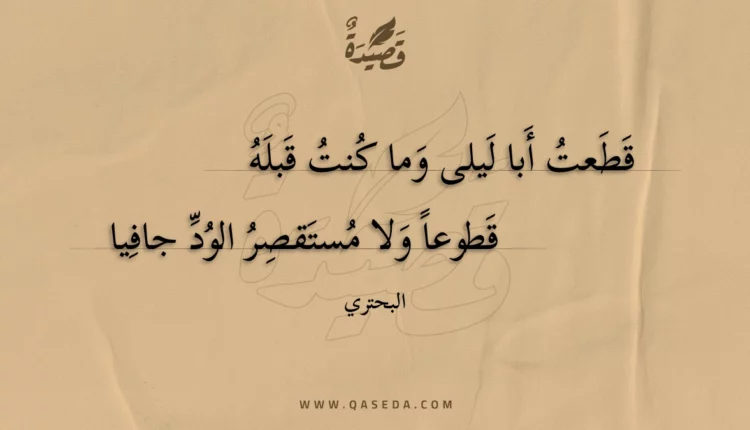 قَصِيْدَةٌ
قَطَعتُ أَبا لَيلى وَما كُنتُ قَبلَهُ
قَطوعاً وَلا مُستَقصِرُ الوُدِّ جافِيا
البحتري
WWW.QASEDA.COM